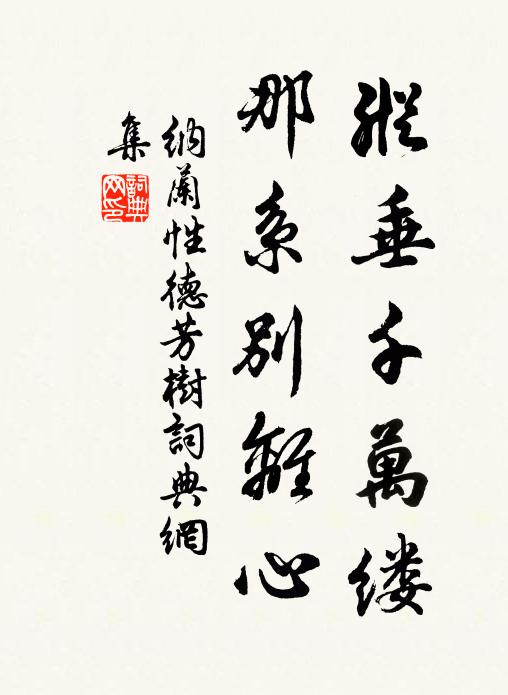 縱垂千萬缕
那系別離心
納蘭性德芳樹詞典網
集
詞典
网印